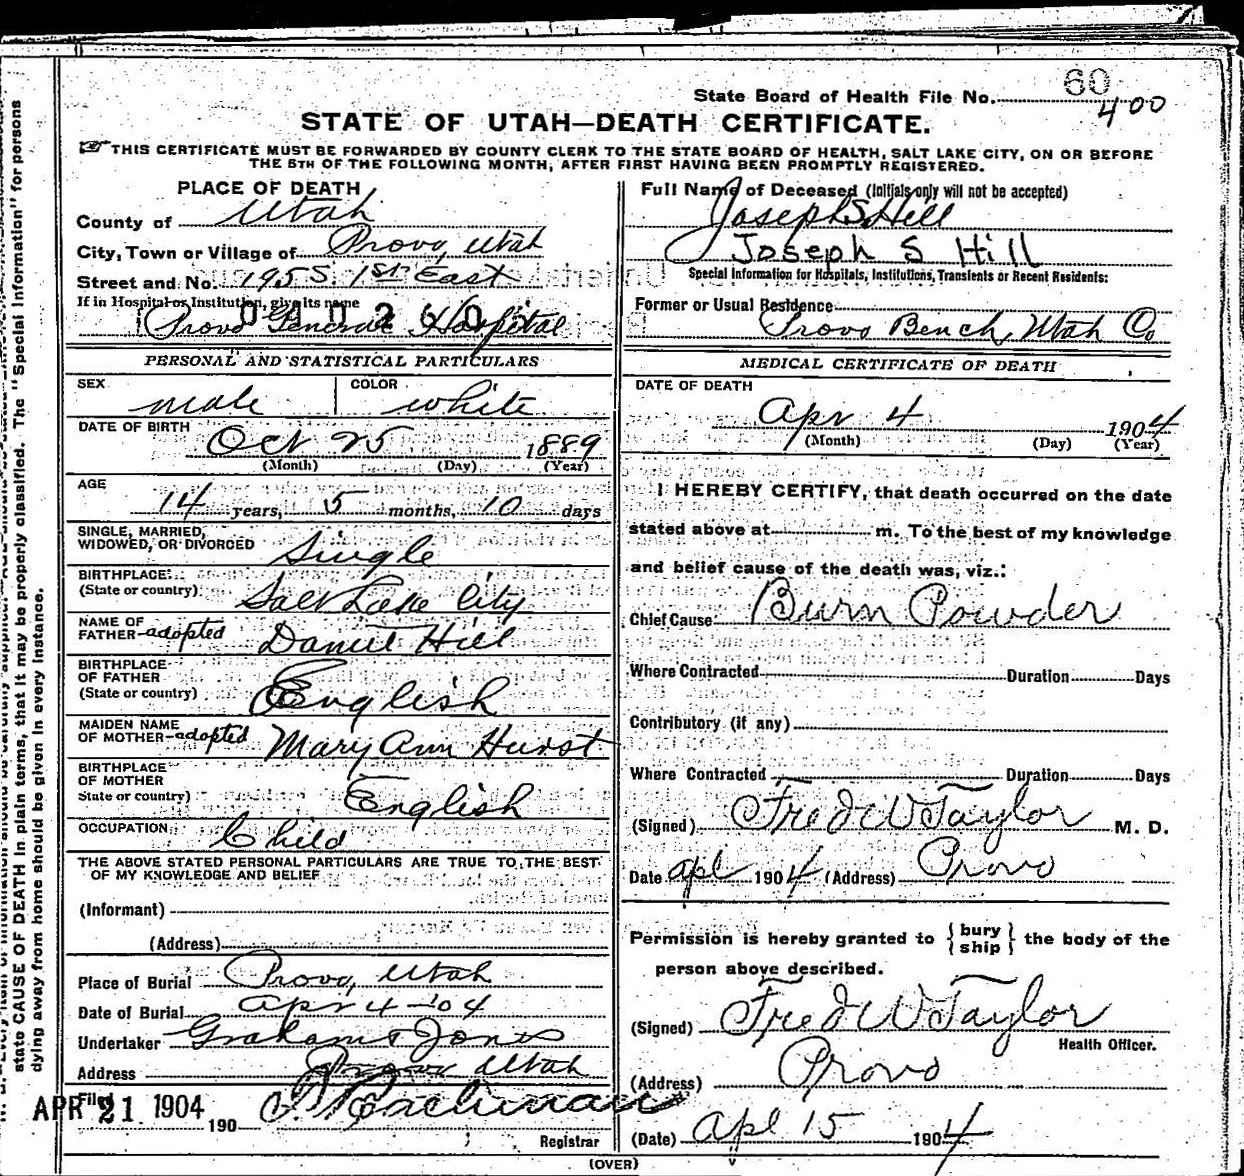 State Board of Health File No. 60
400
STATE OF UTAH—DEATH CERTIFICATE.
THIS CERTIFICATE MUST BE FORWARDED BY COUNTY CLERK TO THE STATE BOARD OF HEALTH, SALT LAKE CITY, ON OR BEFORE
THE 5TH OF THE FOLLOWING MONTH, AFTER FIRST HAVING BEEN PROMPTLY REGISTERED.
PLACE OF DEATH
County of Utah
City, Town or Village of Provo, Utah
Street and No. 195 S. 1st East
If in Hospital or Institution, give its name
Provo General Hospital
PERSONAL AND STATISTICAL PARTICULARS
SEX male COLOR white
DATE OF BIRTH Oct 25 1889
(Month) (Day) (Year)
AGE
14 years, 5 months, 10 days
SINGLE, MARRIED,
WIDOWED, OR DIVORCED Single
BIRTHPLACE
(State or country) Salt Lake City
NAME OF
FATHER-adopted Daniel Hill
BIRTHPLACE
OF FATHER
(State or country) English
MAIDEN NAME
OF MOTHER-adopted Mary Ann Hurst
BIRTHPLACE
OF MOTHER
State or country) English
OCCUPATION Child
THE ABOVE STATED PERSONAL PARTICULARS ARE TRUE TO THE BEST
OF MY KNOWLEDGE AND BELIEF
(Informant)
(Address)
Place of Burial Provo, Utah
Date of Burial Apr 4-'04
Undertaker Graham & Jones
Address Provo Utah
Filed APR 21 1904
190
Registrar
Full Name of Deceased (Initials only will not be accepted)
Joseph S Hill
Joseph S Hill
Special Information for Hospitals, Institutions, Transients or Recent Residents:
Former or Usual Residence
Provo Bench, Utah Co
MEDICAL CERTIFICATE OF DEATH
DATE OF DEATH
Apr 4 1904
(Month) (Day) (Year)
I HEREBY CERTIFY, that death occurred on the date
stated above at m. To the best of my knowledge
and belief cause of the death was, viz.:
Chief Cause Burn Powder
Where Contracted Duration Days
Contributory (if any)
Where Contracted Duration Days
(Signed) Fred W Taylor M. D.
Date Apl 1904 (Address) Provo
Permission is hereby granted to { bury
ship } the body of the
person above described.
(Signed) Fred W Taylor
Health Officer.
(Address) Provo
(Date) Apl 15 1904
(OVER)
state CAUSE OF DEATH in plain terms, that it may be properly classified. The "Special Information" for persons
dying away from home should be given in every instance.